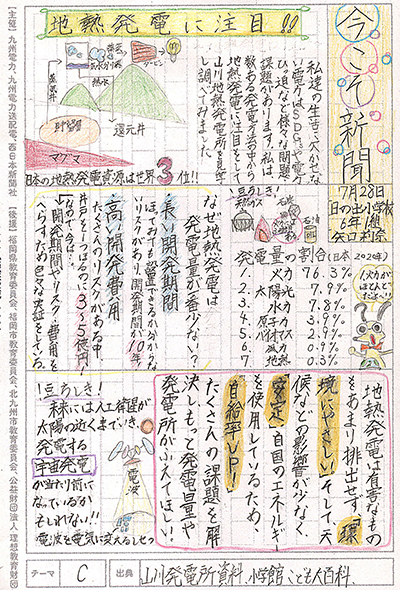 地熱発電に注目!!
今こそ新聞
7月28日
日の出小学校
6年1組
私達の生活に欠かせな
い電力はSDGsや電力
ひっ迫など様々な問題、
課題があります。私は、
数ある発電方法の中から
地熱発電に注目をして
山川地熱発電所を見学
し調べてみました。
蒸気
タービン
熱水
蒸気井
還元井
貯留層
マグマ
日本の地熱発電資源は世界3位!!
なぜ地熱発電は
発電量が番少ない!?
長い開発期間
高い開発費用
たくさんのリスクがある中、
3~5億円!
開発期間やリスク、費用を
へらすため色々な実証をしている。
豆ちしき!
石炭
石油
発電量の割合(日本2022年)
1. 火力 76.3%
2. 太陽光
3. 水力
4. 原子力
5. バイオガス
6. 風力
7. 地熱 0.3%
火力が
ほとんど
だよ〜!!
地熱発電は有害なもの
をあまり排出せず、「環
境にやさしい」そして、天
候などの影響が少なく
安定、自国のエネルギー
を使用しているため、
自給率UP!
たくさんの課題を解
決しもっと発電量や
発電所がふえてほしい!
!豆ちしき!
未来には人工衛星が
太陽の近くまでいき
発電する
宇宙発電
が当たり前に
なっているか
もしれない!!
電波
電波を電気に変えるしせつ
テーマ
C
出典
山川発電所資料、小学館こども大百科、
【主催】九州電力、九州電力送配電、西日本新聞社 【後援】福岡県教育委員会、福岡市教育委員会、北九州市教育委員会、公益財団法人 理想教育財団